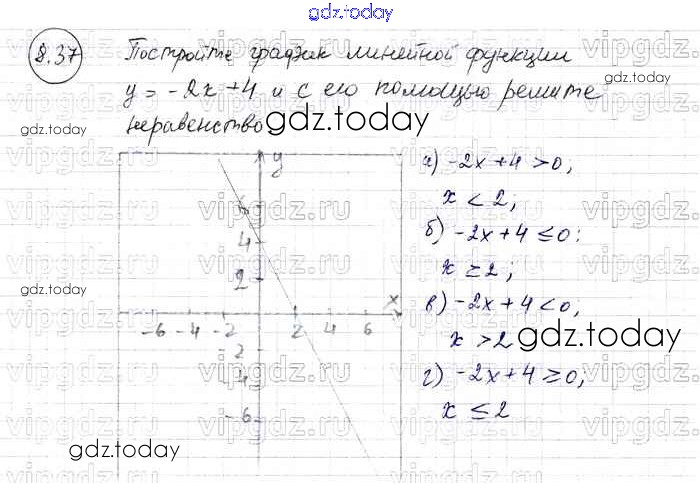 gdz.today
8.37 Постройте график линейной функции
y = -2x+4 и с его помощью решите
gdz.today
неравенство
gdz.today
vipgdz.ru vipgdz.ru vipgdz.ru vipgdz.ru
y
а) -2x+4>0;
6
x < 2;
4
б) -2x+4 ≤ 0:
2
x ≥ 2;
gdz.today
x
в) -2x+4<0;
-6 -4 -2 2 4 6
x >2
gdz.today
-2
г) -2x+4 ≥ 0;
-4
x ≤ 2
-6
gdz.today
gdz.today